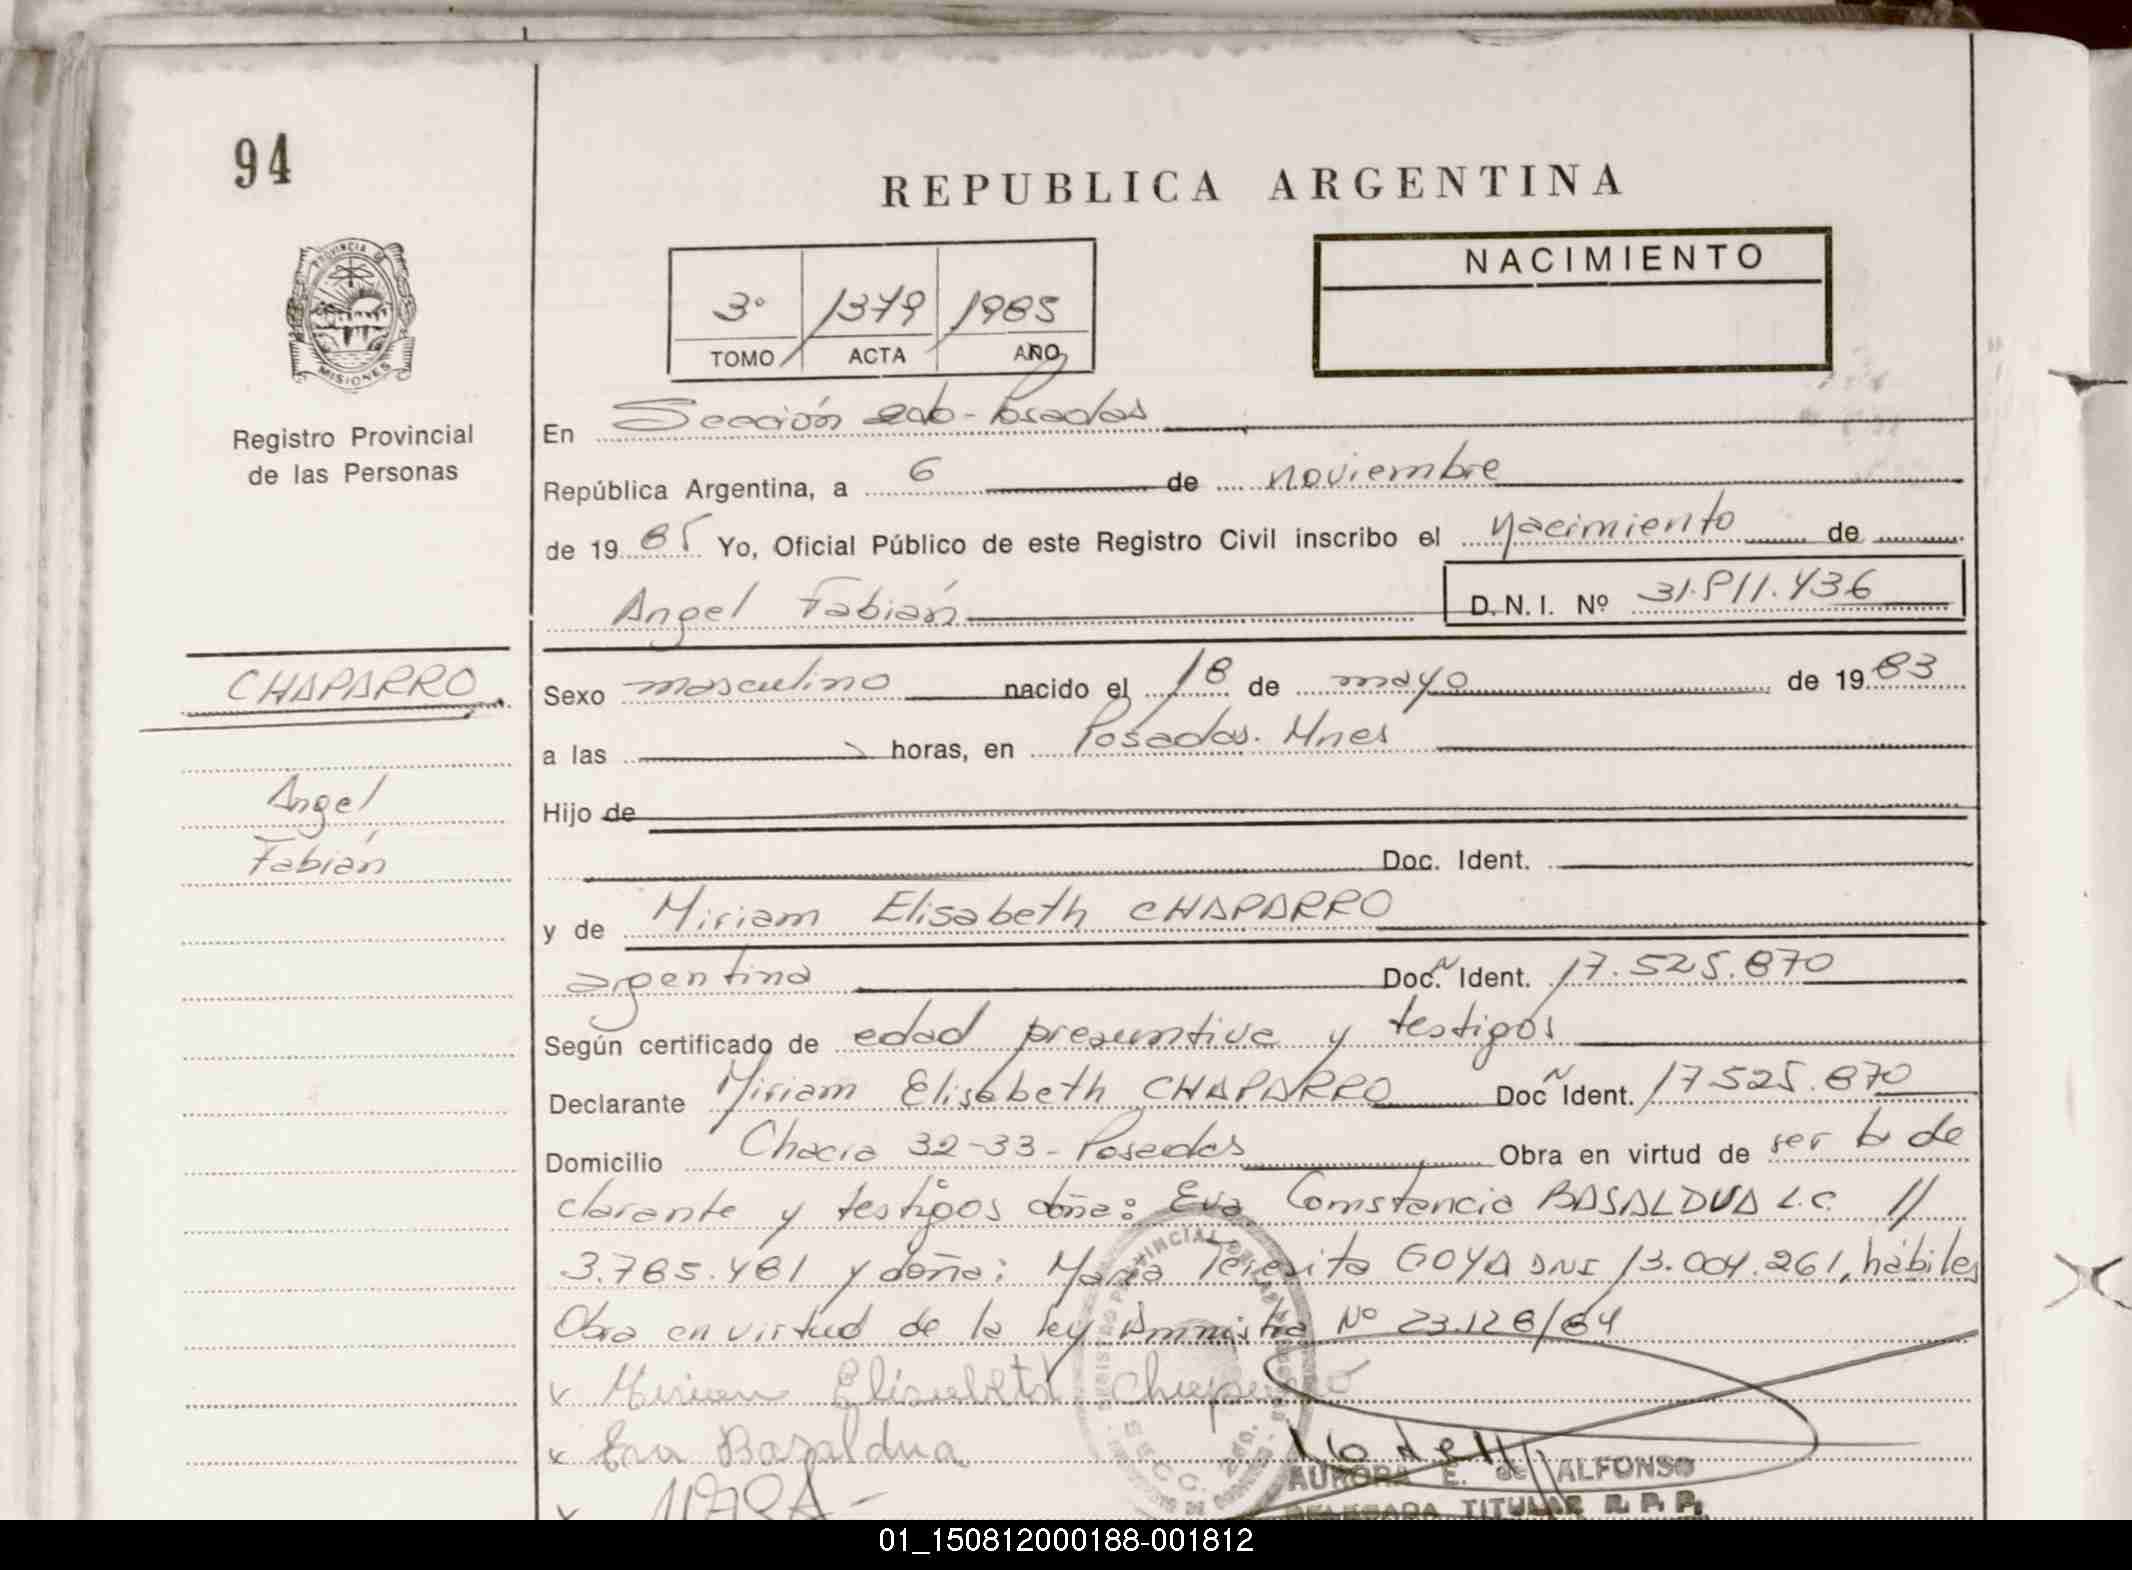 94
REPUBLICA ARGENTINA
PROVINCIA DE
MISIONES
Registro Provincial
de las Personas
3º 1379 1985
TOMO ACTA AÑO
NACIMIENTO
En Sección 2do - Posadas
República Argentina, a 6 de noviembre
de 1985 Yo, Oficial Público de este Registro Civil inscribo el Nacimiento de
Angel Fabián D.N.I. Nº 31.811.436
CHAPARRO
Angel
Fabián
Sexo masculino nacido el 18 de mayo de 1983
a las horas, en Posadas. Mnes
Hijo de
Doc. Ident.
y de Miriam Elisabeth CHAPARRO
argentina Doc. Ident. 17.525.870
Según certificado de edad presuntiva y testigos
Declarante Miriam Elisabeth CHAPARRO Doc Ident. 17525.870
Domicilio Chacra 32-33 - Posadas Obra en virtud de ser la de
clarante y testigos doña: Eva Constancia BASALDUA L.C. //
3.785.481 y doña: María Teresita GOYA DNI 13.004.261, hábiles
Obra en virtud de la ley Amnistia Nº 23.128/84
x Miriam Elisabeth Chaparro
x Eva Basaldua
x
AURORA E. de ALFONSO
DELEGADA TITULAR R. P. P.
01_150812000188-001812